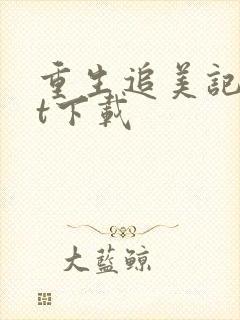 重生追美記
t下載
大藍鯨